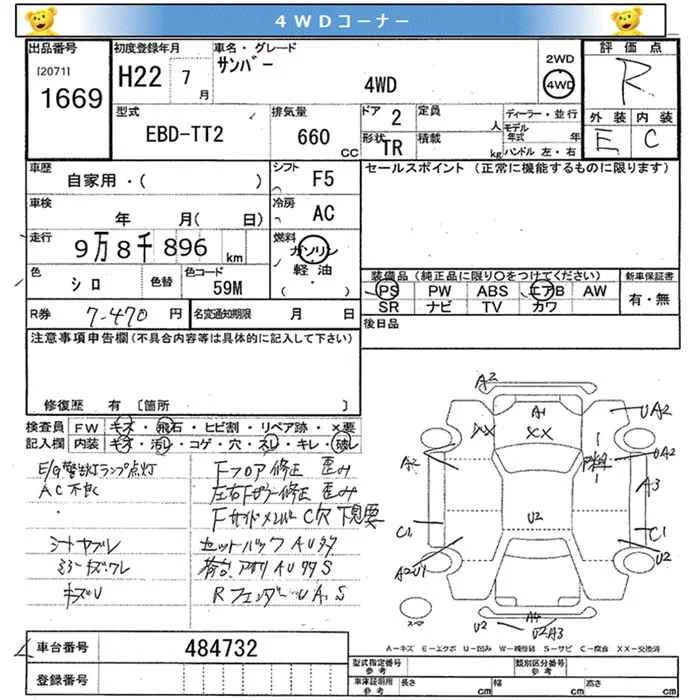 4WDコーナー
出品番号
[2071]
1669
初度登録年月
H22 7月
車名・グレード
サンバー
4WD
2WD
4WD
評価点
R
外装 内装
E C
型式
EBD-TT2
排気量
660 CC
ドア 2
形状 TR
定員 人
積載 kg
ディーラー・並行
モデル年式 年
ハンドル 左・右
車歴
自家用・( )
シフト F5
セールスポイント (正常に機能するものに限ります)
車検
年 月( 日)
冷房 AC
走行
9万8千896 km
燃料
ガソリン
軽油
( ・ )
色
シロ
色替
色コード
59M
装備品(純正品に限り○をつけてください)
PS PW ABS エアB AW
SR ナビ TV カワ
新車保証書
有・無
R券 7-470 円
名変通知期限 月 日
後日品
注意事項申告欄(不具合内容等は具体的に記入して下さい)
修復歴 有 〔箇所 〕
検査員記入欄
FW キズ・飛石・ヒビ割・リペア跡・×要
内装 キズ・汚レ・コゲ・穴・スレ・キレ・破レ
E/g警告灯ランプ点灯
AC不良
シートヤブレ
ミラーキズワレ
キズU
Fフロア修正 歪み
左右Fピラー修正 歪み
FサイドメンバーC穴 下見要
セットバックAUサタ
荷台アオリAUサタS
RフェンダーUAS
A2
A1
UA2
XX
XX
A2
UA2
A3
U2
C1
C1
A2U1
U2
スペア
A4
U2
U2A3
A-キズ E-エクボ U-凹み W-補修跡 S-サビ C-腐食 XX-交換済
車台番号 484732
登録番号
型式指定番号 参考
類別区分番号 参考
車庫証明用 参考
長さ cm
幅 cm
高さ cm